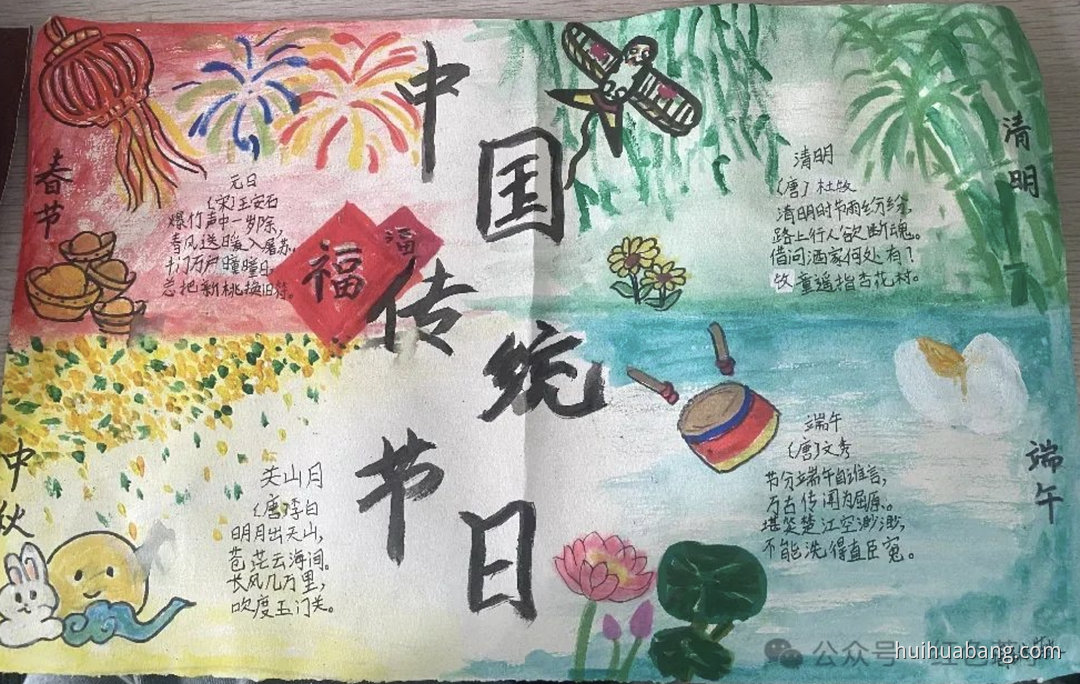 中国传统节日
春节
元日
(宋)王安石
爆竹声中一岁除,
春风送暖入屠苏。
千门万户曈曈日,
总把新桃换旧符。
福
福
清明
清明
(唐)杜牧
清明时节雨纷纷,
路上行人欲断魂。
借问酒家何处有?
牧童遥指杏花村。
中秋
关山月
(唐)李白
明月出天山,
苍茫云海间。
长风几万里,
吹度玉门关。
端午
端午
(唐)文秀
节分端午自谁言,
万古传闻为屈原。
堪笑楚江空渺渺,
不能洗得直臣冤。
公众号
huihuabang.com